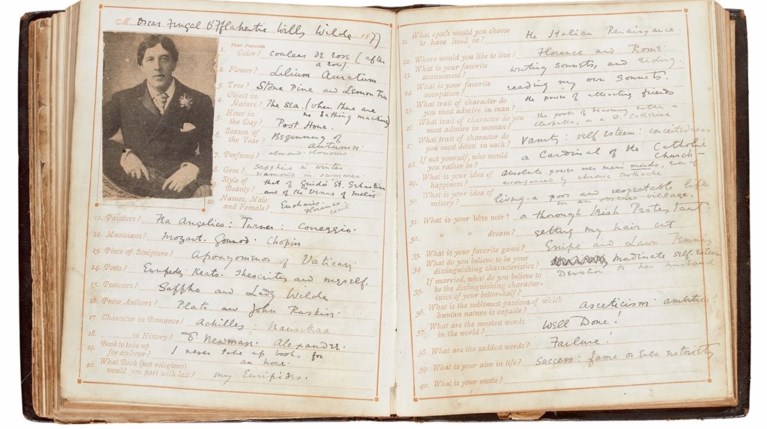 Oscar Fingal O'Flahertie Wills Wilde 1877
Your Favorite
1. Color? couleur de rose (after
a rose)
2. Flower? Lilium Auratum
3. Tree? Stone Pine and Lemon Tree
4. Object in
Nature? The Sea. (when there are
no bathing machines)
5. Hour in
the Day? Post Hour.
6. Season of
the Year? Beginning of
autumn.
7. Perfume? almond blossoms
8. Gem? Sapphire in winter
diamond in summer
9. Style of
Beauty? that of Guido's St. Sebastian
and of the Venus of Melos
10. Names, Male
and Female? Euphorion
Florence
11. Painters? Fra Angelico: Turner: Correggio.
12. Musicians? Mozart. Gounod. Chopin
13. Piece of Sculpture? of Vatican
14. Poets? Euripides, Keats. Theocritus and myself.
15. Poetesses? Sappho and Lady Wilde
16. Prose Authors? Plato and John Ruskin
17. Character in Romance? Achilles: Nausikaa
18. in History? Newman. Alexander
19. Book to take up
for an hour? I never take up books for
an hour.
20. What Book (not religious)
would you part with last? my Euripides.
21. What epoch would you choose
to have lived in? The Italian Renaissance
22. Where would you like to live? Florence and Rome
23. What is your favorite
amusement? writing sonnets, and riding.
24. What is your favorite
occupation? reading my own sonnets.
25. What trait of character do
you most admire in man? the power of attracting friends
26. What trait of character do you
most admire in woman? the power of becoming either a
Cleopatra or a St. Catherine
27. What trait of character do
you most detest in each? Vanity: self esteem: conceitedness
28. If not yourself, who would
you rather be? a Cardinal of the Catholic
Church
29. What is your idea of
happiness? absolute power over men's minds, even if
accompanied by chronic toothache
30. What is your idea of
misery? living a poor and respectable life
in an obscure village.
31. What is your bête noire? a thorough Irish Protestant
32. " " dream? getting my hair cut
33. What is your favorite game? Snipe and Lawn Tennis
34. What do you believe to be your
distinguishing characteristics? inordinate self-esteem
35. If married, what do you believe to
be the distinguishing character-
istics of your better-half? Devotion to her husband
36. What is the sublimest passion of which
human nature is capable? Asceticism. ambition
37. What are the sweetest words
in the world? Well Done!
38. What are the saddest words? Failure!
39. What is your aim in life? Success: fame or even notoriety
40. What is your motto?